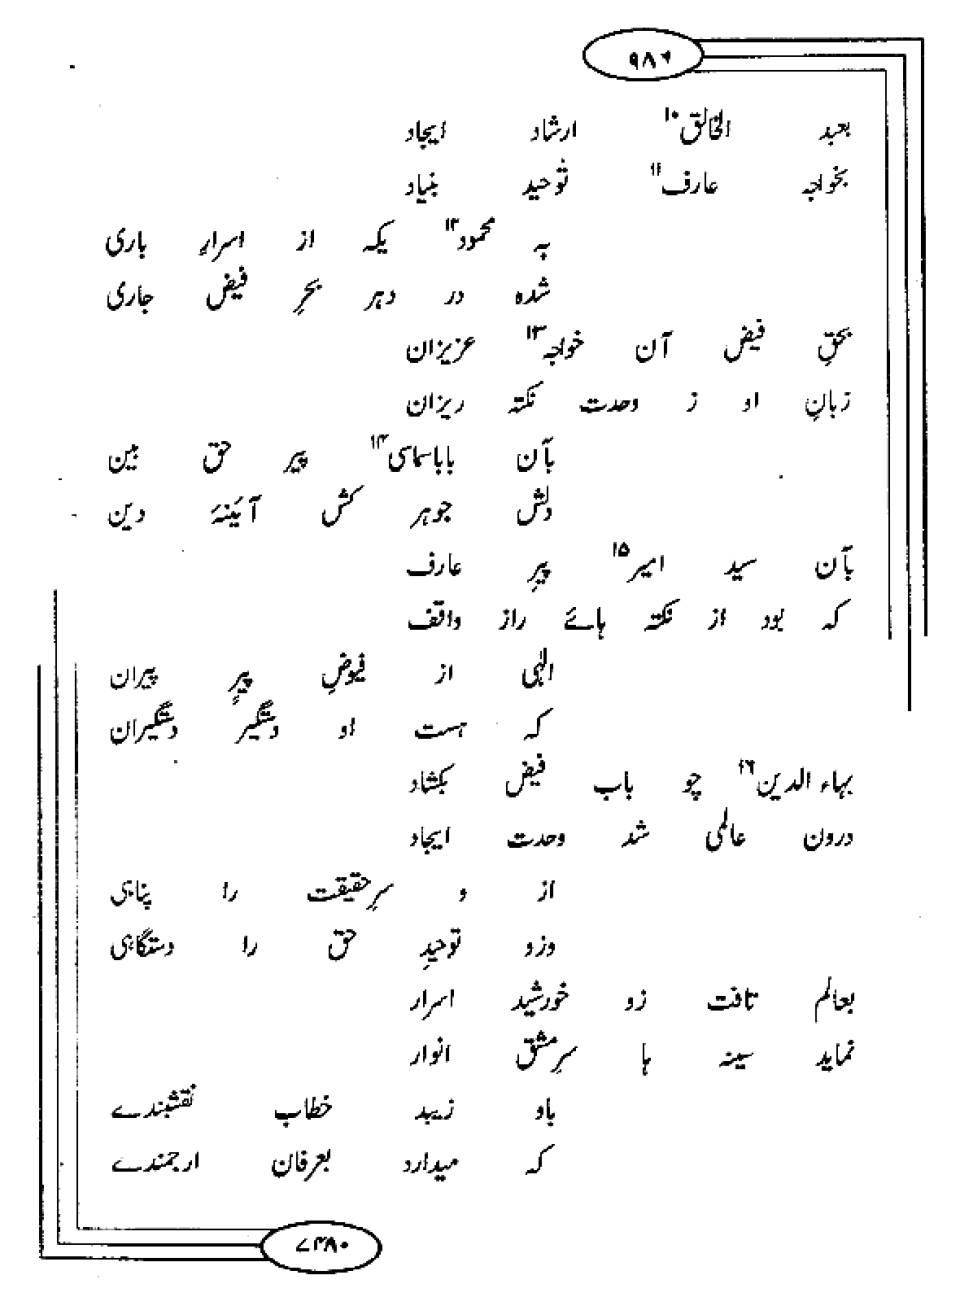 ۹۸۶
بعبد الخالق۱۰ ارشاد ایجاد
بخواجہ عارف۱۱ توحید بنیاد
بہ محمود۱۲ یکہ از اسرارِ باری
شدہ در دہر بحرِ فیض جاری
بحقِ فیض آن خواجہ۱۳ عزیزان
زبانِ او ز وحدت نکتہ ریزان
بآن باباسماسی۱۴ پیر حق بین
دلش جوہر کش آئینۂ دین
بآن سید امیر۱۵ پیرِ عارف
کہ بود از نکتہ ہائے راز واقف
الٰہی از فیوضِ پیرِ پیران
کہ ہست او دستگیر دستگیران
بہاء الدین۱۶ چو باب فیض بکشاد
درون عالمی شد وحدت ایجاد
از و سرِحقیقت را پناہی
وزو توحیدِ حق را دستگاہی
بعالم تافت زو خورشید اسرار
نماید سینہ ہا سرِمشق انوار
باو زیبد خطاب نقشبندے
کہ میدارد بعرفان ارجمندے